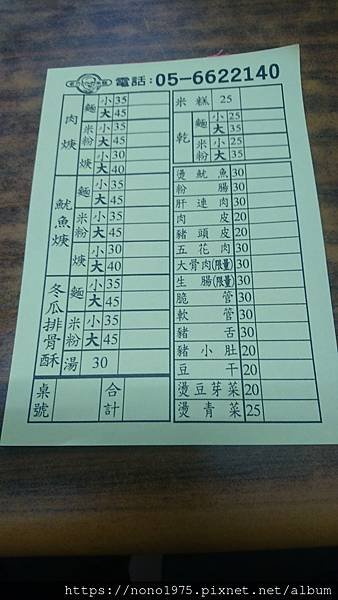 電話:05-6622140
肉焿 麵 小 35
大 45
米粉 小 35
大 45
焿 小 30
大 40
魷魚焿 麵 小 35
大 45
米粉 小 35
大 45
焿 小 30
大 40
冬瓜排骨酥 麵 小 35
大 45
米粉 小 35
大 45
湯 30
桌號 合計
米糕 25
乾 麵 小 25
大 35
米粉 小 25
大 35
燙魷魚 30
粉腸 30
肝連肉 30
肉皮 20
豬頭皮 20
五花肉 30
大骨肉(限量) 30
生腸(限量) 30
脆管 30
軟管 30
豬舌 30
豬小肚 20
豆干 20
燙豆芽菜 20
燙青菜 25
https://nono1975.pixnet.net/album